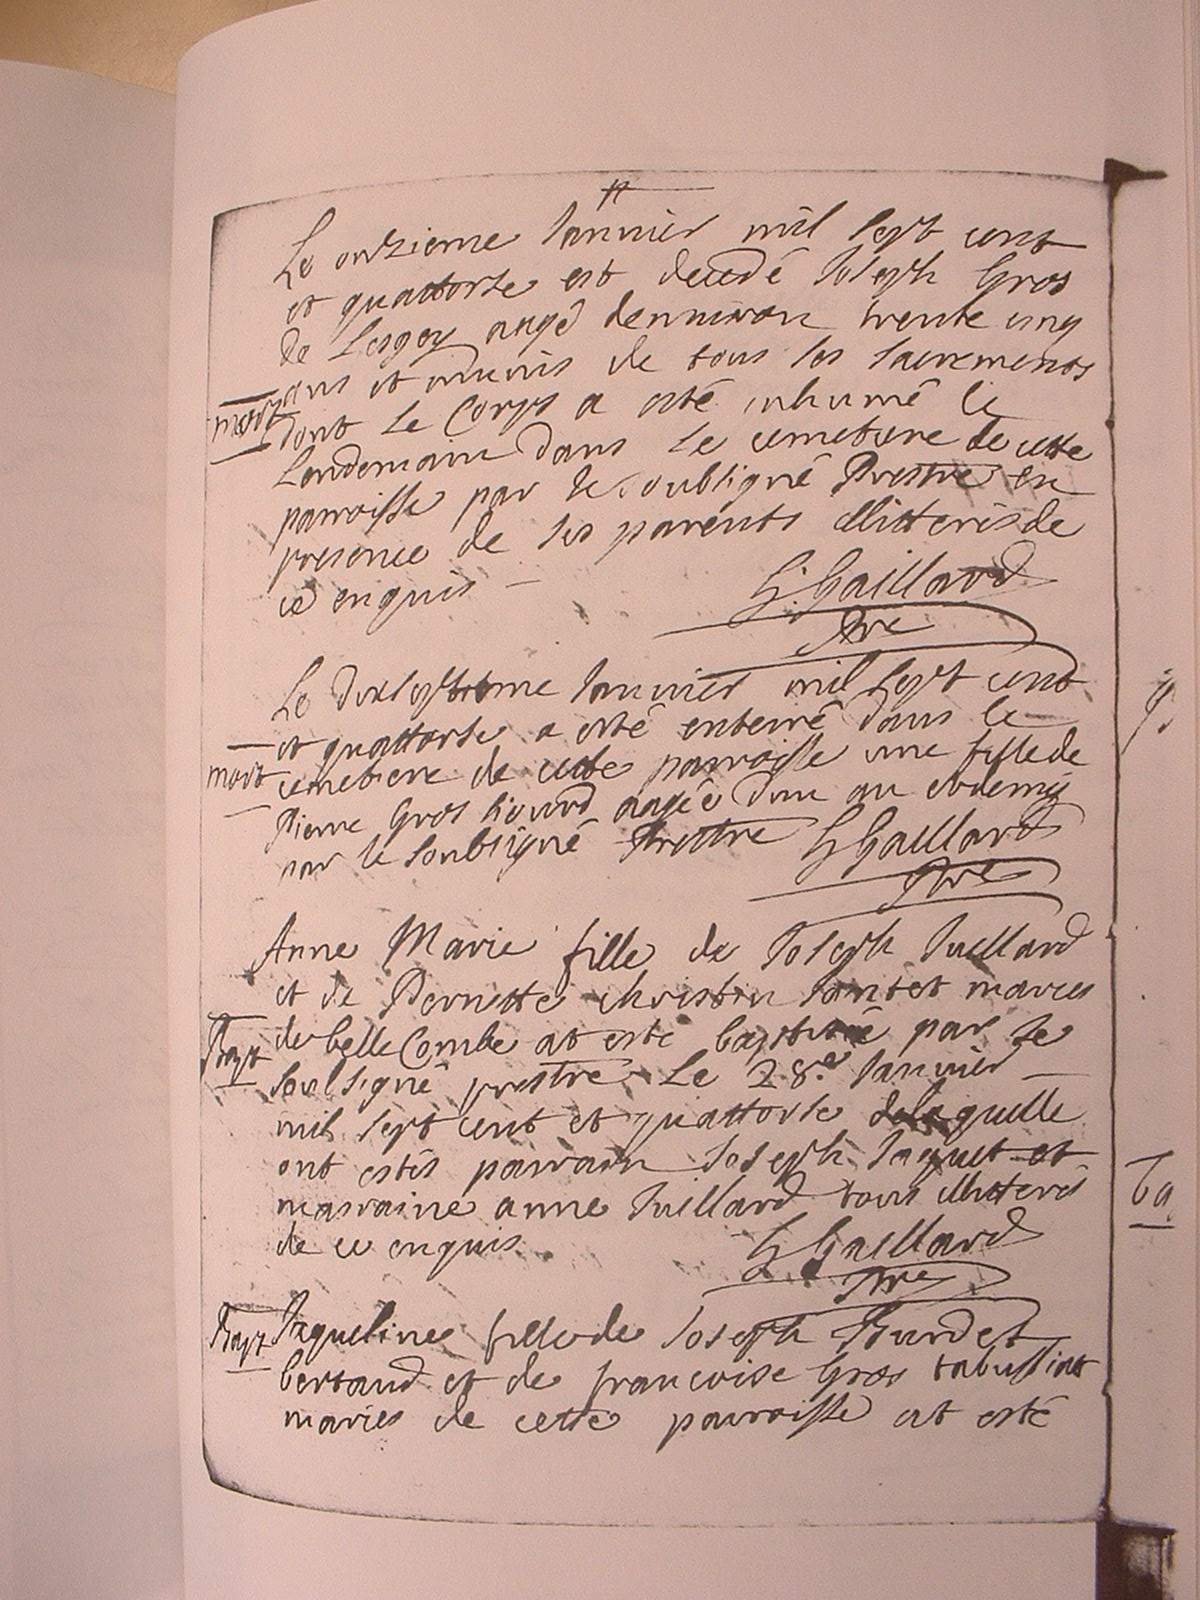 Le onzieme Janvier mil sept cent
et quattorse est decedé Joseph Gros
de Lesgey aagé denniron trente cinq
ans et munis de tous les sacrements
mort dont le Corps a esté inhumé le
Landemain dans le cemetiere de cette
parroisse par le soubsigné Prestre en
presence de ses parents illitterés de
ce enquis G. Gaillard
Pre
Le dixseptieme Janvier mil sept cent
et quattorse a esté enterré dans le
mort cemetiere de cette parroisse une fille de
Pierre Gros aagée dun an et demij
par le soubsigné Prestre G Gaillard
Pre
Anne Marie fille de Joseph Juillard
et de Pernette Christin Jantet maries
Bapt de belle Combe at esté baptisée par le
soubsigné prestre Le 28.e Janvier
mil sept cent et quattorse de laquelle
ont estés parrain Joseph Jaquet et
marraine anne Juillard tous illitterés
de ce enquis G Gaillard
Pre
Bapt Jaqueline fille de Joseph Burdet
bertaud et de francoise Gros
maries de cette parroisse at esté
ba